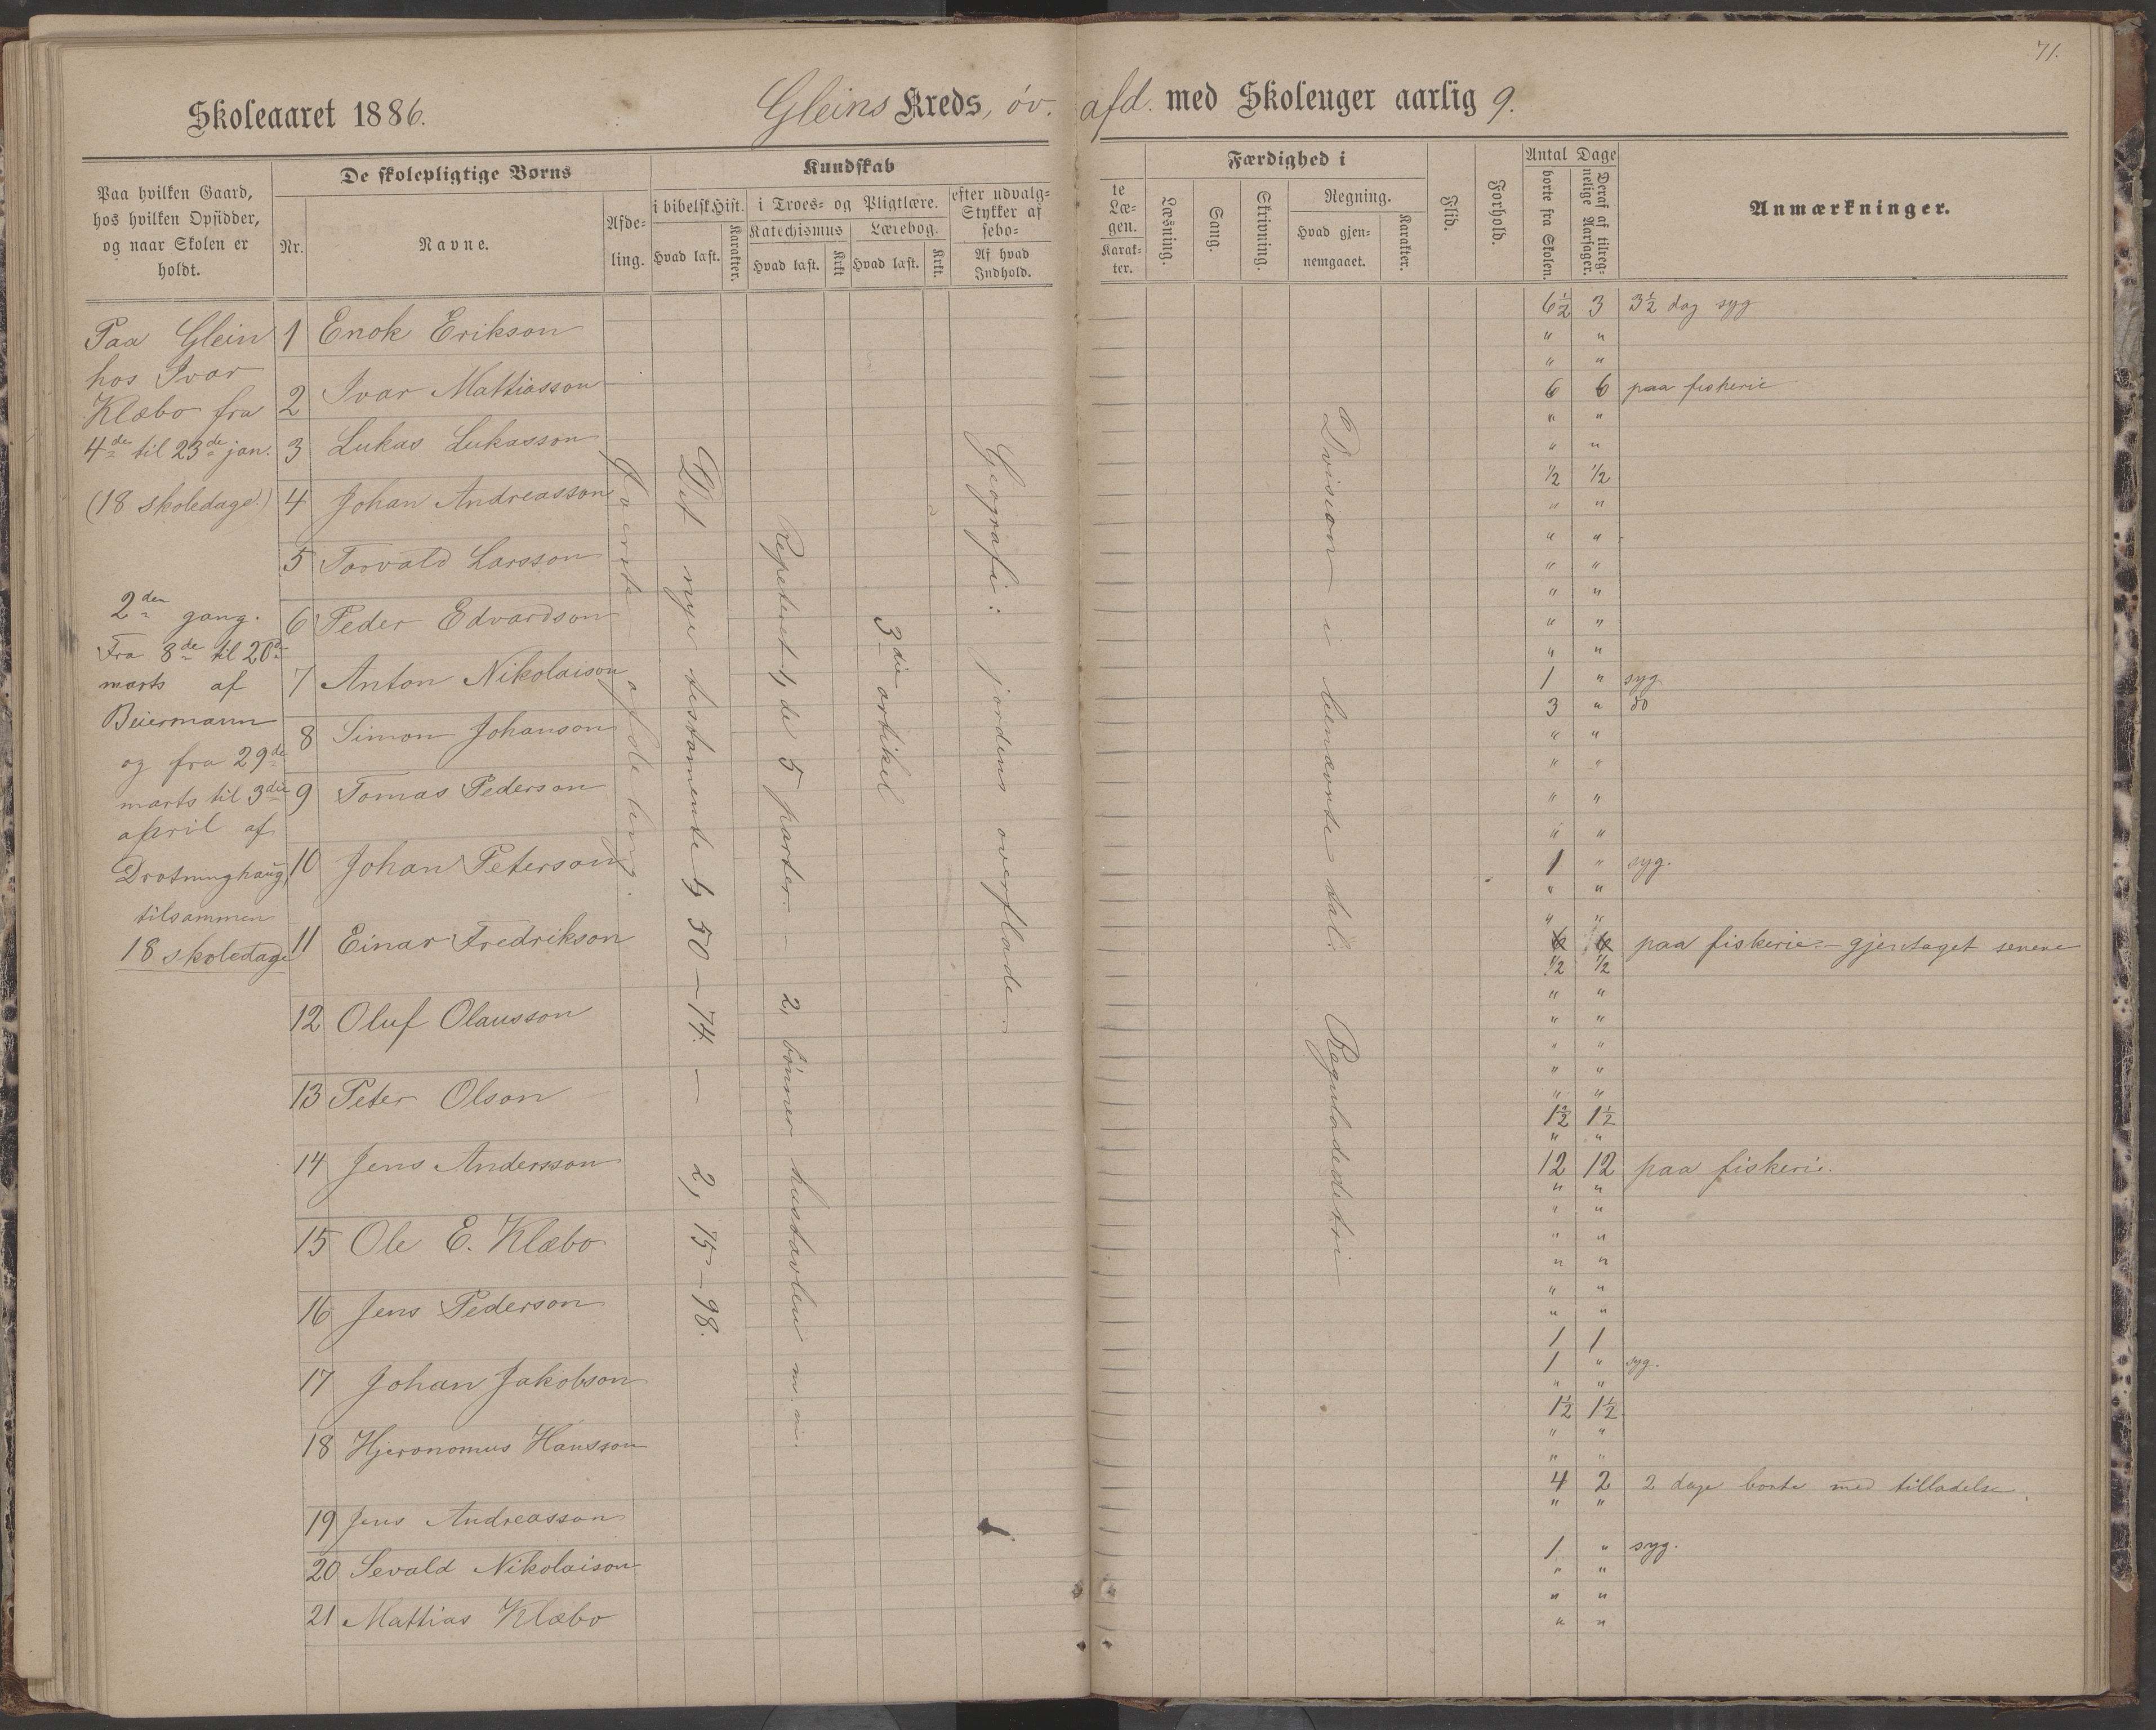 71.
Skoleaaret 1886. Gleins Kreds, öv. afd. med Skoleuger aarlig 9.
Paa hvilken Gaard, hos hvilken Opsidder, og naar Skolen er holdt.
De skolepligtige Børns
Nr.
Navne.
Afdeling.
Kundskab
i bibelsk Hist.
Hvad læst.
Karakter.
i Troes- og Pligtlære.
Katechismus
Hvad læst.
Krkt.
Lærebog.
Hvad læst.
Krkt.
efter udvalg-
Stykker af
sebo-
Af hvad Indhold.
te
Læ-
gen.
Karak-
ter.
Færdighed i
Læsning.
Sang.
Skrivning.
Regning.
Hvad gjen-
nemgaaet.
Karakter.
Flid.
Forhold.
Antal Dage
borte fra Skolen.
Deraf af tilreg-
nelige Aarsager.
Anmærkninger.
Paa Glein
hos Ivar
Klæbo fra
4de til 23de jan.
(18 skoledage.)
2den gang.
Fra 8de til 20de
marts af
Beiermann
og fra 29de
marts til 3die
april af
Drotninghaug,
tilsammen
18 skoledage
1 Enok Erikson
2 Ivar Mattiasson
3 Lukas Lukasson
4 Johan Andreasson
5 Torvald Larsson
6 Peder Edvardson
7 Anton Nikolaison
8 Simon Johanson
9 Tomas Pederson
10 Johan Peterson
11 Einar Fredrikson
12 Oluf Olausson
13 Peter Olson
14 Jens Andersson
15 Ole E. Klæbo
16 Jens Pederson
17 Johan Jakobson
18 Hjeronomus Hansson
19 Jens Andreasson
20 Sevald Nikolaison
21 Mattias Klæbo
afdeling.
Det nye testamente 1, 50 — 74. — 2, 75 — 98.
Repeteret 1, de 5 parter. — 2, bönner hustavlen m. m.
3die artikel
Geografi: jordens overflade.
Division i benævnte tal. Reguladetri
6½ 3 3½ dag syg
" "
" "
6 6 paa fiskerie
" "
" "
½ ½
" "
" "
" "
" "
" "
" "
1 " syg
3 " do
" "
" "
" "
" "
1 " syg.
" "
" "
6 6 paa fiskerie - gjentaget senere
½ ½
" "
" "
" "
" "
" "
1½ 1½
" "
12 12 paa fiskeri.
" "
" "
" "
" "
" "
" "
1 1
1 " syg.
" "
1½ 1½
" "
" "
4 2 2 dage borte med tilladelse.
" "
1 " syg.
" "
" "
" "